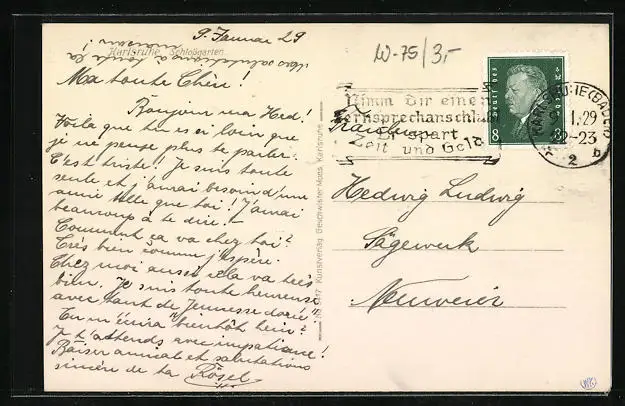 9. Januar 29
Karlsruhe Schloßgarten
Mes salutations à toute ta
maison!
Ma toute Chère!
Bonjour ma Hed!
Voila que tu es si loin que
je ne peuse plus te parler.
C'est triste! Je suis toute
seule et j'aurai besoin d'une
amie telle que toi! J'aurai
beaucoup à te dire.
Comment ça va chez toi?
Très bien comme j'espère.
Chez moi aussi cela va très
bien. Je suis toute heureuse
avec tant de "Jeunesse dorée"!
Tu m'écrira bientôt hein?
J t'attends avec impatience!
Baiser amical et salutations
sincère de ta Rösel
Nr. 217 Kunstverlag Geschwister Moos, Karlsruhe
W-75/3,-
Nimm dir einen
Fernsprechanschluß
Er spart
Zeit und Geld
8 8
KARLSRUHE (BADEN)
9.1.29
22-23
2 b
Hedwig Ludwig
Sägewerk
Neuweier